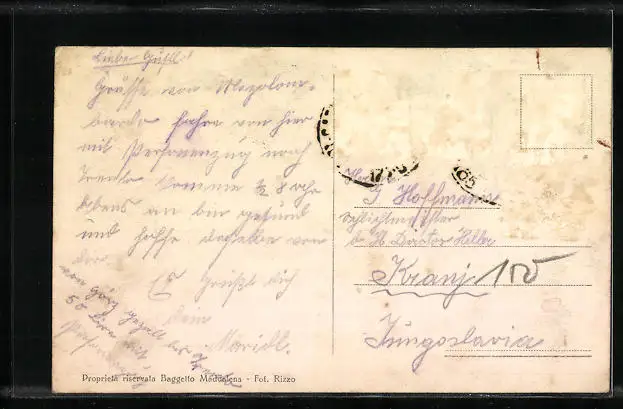 Liebe Gustl!
Grüsse von Mezolom-
bardo fahre von hier
mit Personenzug nach
Trento komme ½ 8 Uhr
abens an bin gesund
und hoffe dasselbe von
dir.
Es Grüßt dich
dein
Maridl.
von Görz
50 Lire mit
Proprietà riservata Baggetto Maddalena - Fot. Rizzo
J. Hoffmann
b. H. Doctor Heller
Kranj 155
Jungoslavia